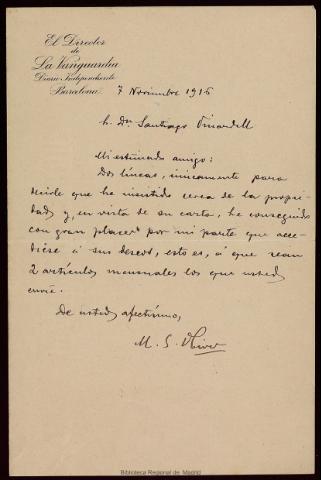 El Director
de
La Vanguardia
Diario Independiente
Barcelona
7 Noviembre 1916
Sr. Dn. Santiago Vinardell
Mi estimado amigo:
Dos líneas, únicamente para
decirle que he insistido cerca de la propie-
dad y, en vista de su carta, he conseguido
con gran placer por mi parte que acce-
diese á sus deseos, esto es, á que sean
2 artículos mensuales los que usted
envíe.
De usted afectísimo,
M. S. Oliver
Biblioteca Regional de Madrid